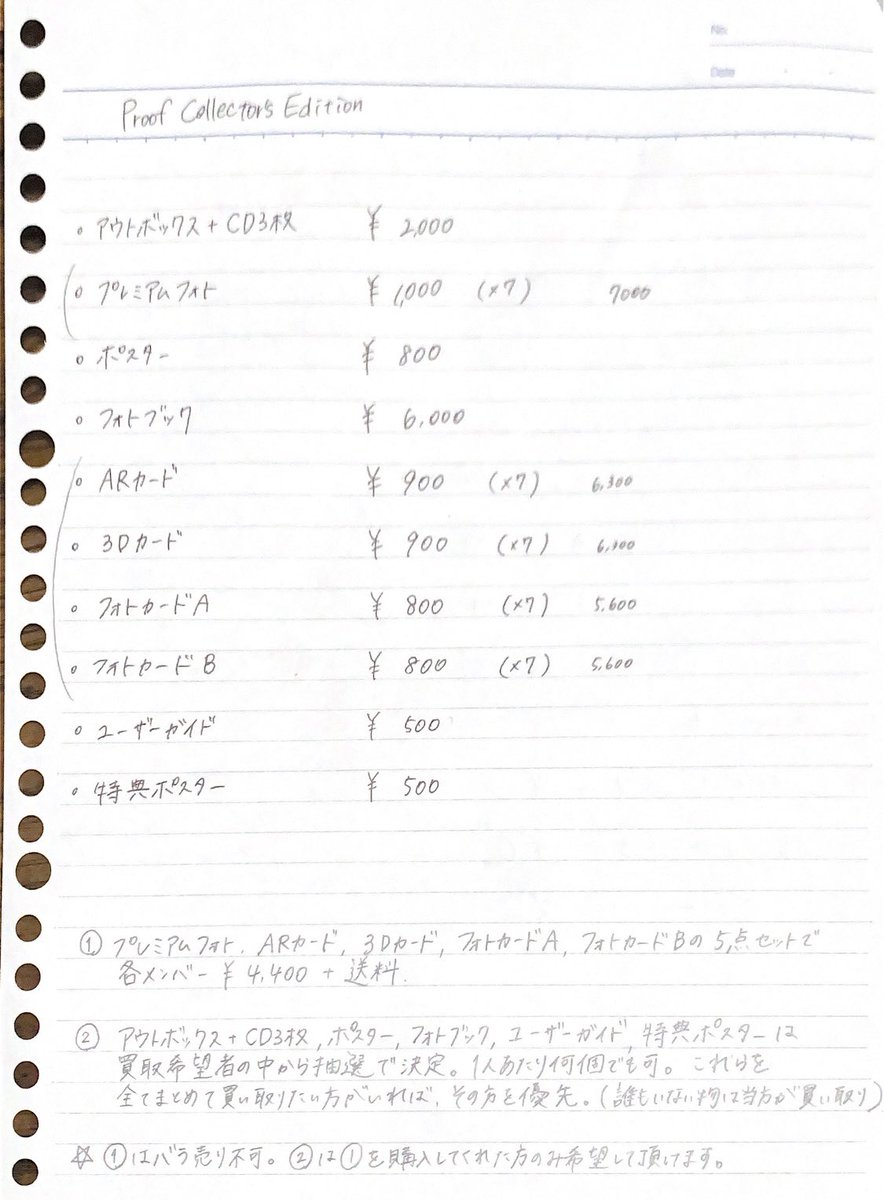 No.
Date
Proof Collectors Edition
。アウトボックス + CD3枚 ¥ 2,000
。プレミアムフォト ¥ 1,000 (×7) 7000
。ポスター ¥ 800
。フォトブック ¥ 6,000
。ARカード ¥ 900 (×7) 6,300
。3Dカード ¥ 900 (×7) 6,300
。フォトカードA ¥ 800 (×7) 5,600
。フォトカードB ¥ 800 (×7) 5,600
。ユーザーガイド ¥ 500
。特典ポスター ¥ 500
① プレミアムフォト, ARカード, 3Dカード, フォトカードA, フォトカードBの 5点セットで
各メンバー ¥ 4,400 + 送料.
② アウトボックス+CD3枚, ポスター, フォトブック, ユーザーガイド, 特典ポスターは
買取希望者の中から抽選で決定。1人あたり何個でも可。これらを
全てまとめて買い取りたい方がいれば, その方を優先。(誰もいない物は当方が買い取り)
☆ ①はバラ売り不可。②は①を購入してくれた方のみ希望して頂けます。